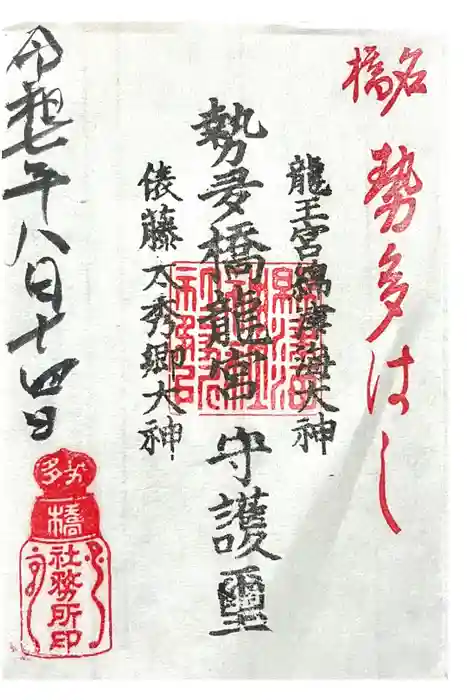 名橋
勢多はし
龍王宮綿津海大神
勢多橋龍宮 守護璽
俵藤太秀郷大神
令和七年八日十四日
勢多
橋
社務所印